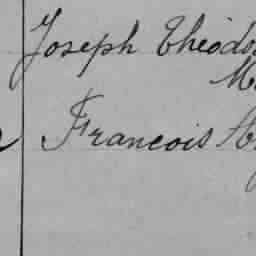 Joseph Théodo
M
Francois